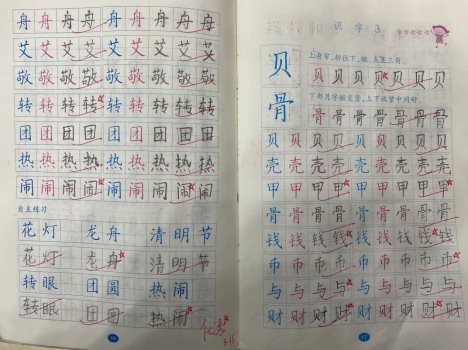 舟舟舟舟舟舟舟舟
艾艾艾艾艾艾艾艾
敬敬敬敬敬敬敬敬
转转转转转转转转
团团团团团团团团
热热热热热热热热
闹闹闹闹闹闹闹闹
自主练习
花灯 龙舟 清明节
花灯 龙舟 清明节
转眼 团圆 热闹
转眼 团圆 热闹
3.15
识字3
贝
贝贝贝贝贝贝
骨
骨骨骨骨骨骨
贝贝贝贝贝贝贝贝
壳壳壳壳壳壳壳壳
甲甲甲甲甲甲甲甲
骨骨骨骨骨骨骨骨
钱钱钱钱钱钱钱钱
币币币币币币币币
与与与与与与与与
财财财财财财财财